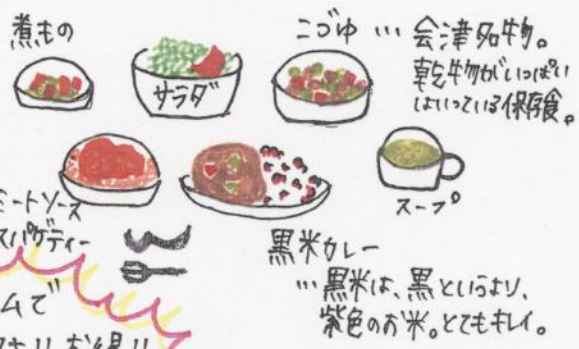 煮もの
サラダ
こづゆ … 会津名物。
乾物がいっぱい
はいっている保存食。
ミートソース
スパゲティー
黒米カレー
…黒米は、黒というより、
紫色のお米。とてもキレイ。
スープ
ムで
お得!!